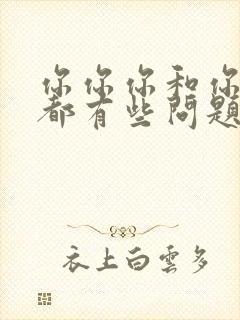 你你你和你
都有些问题
衣上白雲多